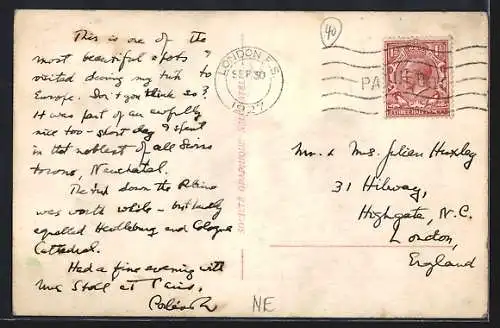 This is one of the
most beautiful spots I
visited during my trip to
Europe. Don't you think so?
It was part of an awfully
nice too-short day I spent
in that noblest of all Swiss
towns, Neuchatel.
The trip down the Rhine
was worth while - but hardly
equalled Heidelburg and Cologne
Cathedral.
Had a fine evening with
Miss Stoll at Paris,
40
LONDON F.S.
SEP 30
1927
THREE HALFPENCE
SOCIÉTÉ GRAPHIQUE
Mr. & Mrs. Julien Huxley
31 Hilway,
Highgate, N.C.
London,
England
NE